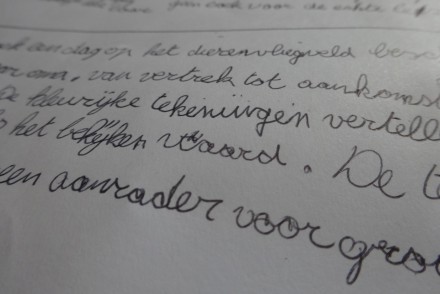 gan ook voor de echte
een dag op het dierenvliegveld
van vertrek tot aankomst
De kleurijke tekeningen vertell
het bekijken waard. De
een aanrader voor groo